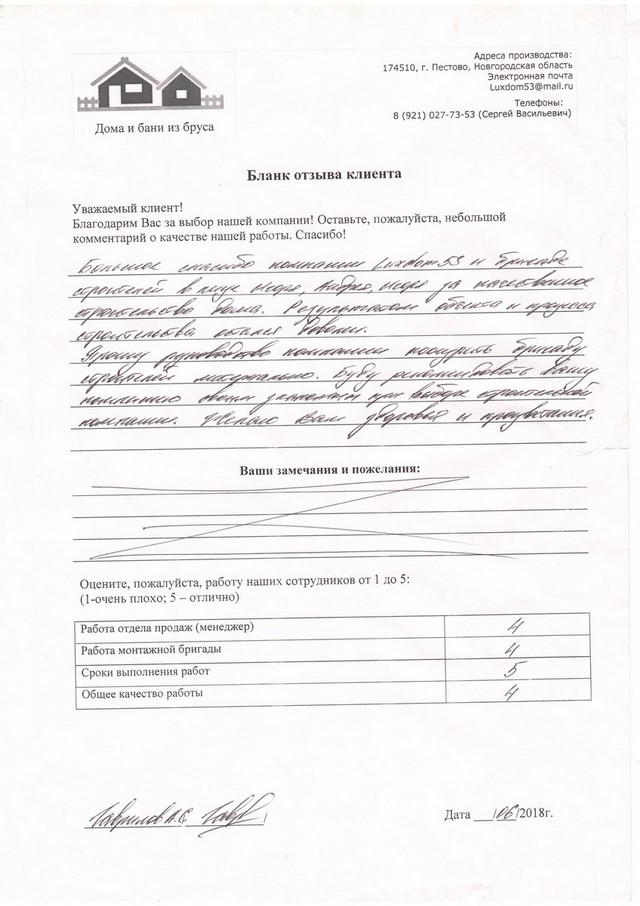 Адреса производства:
174510, г. Пестово, Новгородская область
Электронная почта
Luxdom53@mail.ru
Телефоны:
8 (921) 027-73-53 (Сергей Васильевич)
Дома и бани из бруса
Бланк отзыва клиента
Уважаемый клиент!
Благодарим Вас за выбор нашей компании! Оставьте, пожалуйста, небольшой
комментарий о качестве нашей работы. Спасибо!
Большое спасибо компании Luxdom53 и бригаде
строителей в лице Игоря, Андрея, Игоря за качественное
строительство дома. Результатом объекта и процесса
строительства остался доволен.
Прошу руководство компании поощрить бригаду
строителей материально. Буду рекомендовать Вашу
компанию своим знакомым при выборе строительной
компании. Желаю Вам здоровья и процветания.
Ваши замечания и пожелания:
Оцените, пожалуйста, работу наших сотрудников от 1 до 5:
(1-очень плохо; 5 – отлично)
Работа отдела продаж (менеджер) 4
Работа монтажной бригады 4
Сроки выполнения работ 5
Общее качество работы 4
Гаврилов А.С.
Дата ___/06/2018г.